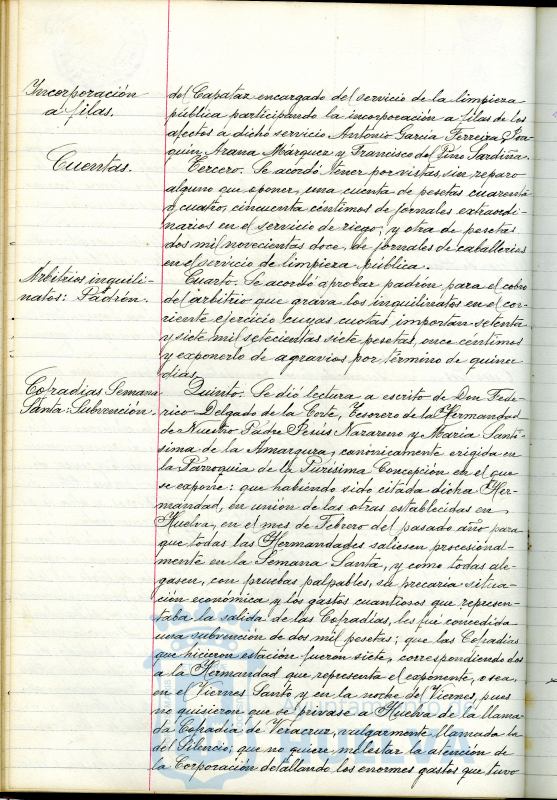 Incorporación
á filas.
del Capataz encargado del servicio de la limpieza
pública participando la incorporación a filas de los
afectos a dicho servicio Antonio Garcia Ferreira, Joa-
quin Arana Márquez y Francisco del Pino Sardiña.
Cuentas.
Tercero. Se acordó tener por vistas, sin reparo
alguno que oponer, una cuenta de pesetas cuarenta
y cuatro, cincuenta céntimos de jornales extraordi-
narios en el servicio de riego, y otra de pesetas
dos mil novecientas doce, de jornales de caballerias
en el servicio de limpieza pública.
Arbitrios inquili-
natos: Padrón.
Cuarto. Se acordó aprobar padrón para el cobro
del arbitrio que grava los inquilinatos en el cor-
riente ejercicio cuyas cuotas importan setenta
y siete mil setecientas siete pesetas, once céntimos
y exponerlo de agravios por término de quince
dias.
Cofradias Semana
Santa: Subvención.
Quinto. Se dió lectura a escrito de Don Fede-
rico Delgado de la Corte, Tesorero de la Hermandad
de Nuestro Padre Jesús Nazareno y Maria Santi-
sima de la Amargura, canónicamente erigida en
la Parroquia de la Purisima Concepción en el que
se expone: que habiendo sido citada dicha Her-
mandad, en unión de las otras establecidas en
Huelva, en el mes de Febrero del pasado año para
que todas las Hermandades saliesen procesional-
mente en la Semana Santa, y como todas ale-
gasen, con pruebas palpables, su precaria situa-
ción económica y los gastos cuantiosos que represen-
taba la salida de las Cofradias, les fué concedida
una subvención de dos mil pesetas; que las Cofradias
que hicieron estación fueron siete, correspondiendo dos
a la Hermandad que representa el exponente, o sea,
en el Viernes Santo y en la noche del Viernes, pues
no quisieron que se privase a Huelva de la llama-
da Cofradia de Veracruz, vulgarmente llamada la
del Silencio; que no quiere molestar la atención de
la Corporación detallando los enormes gastos que tuvo
Ayuntamiento de
HUELVA